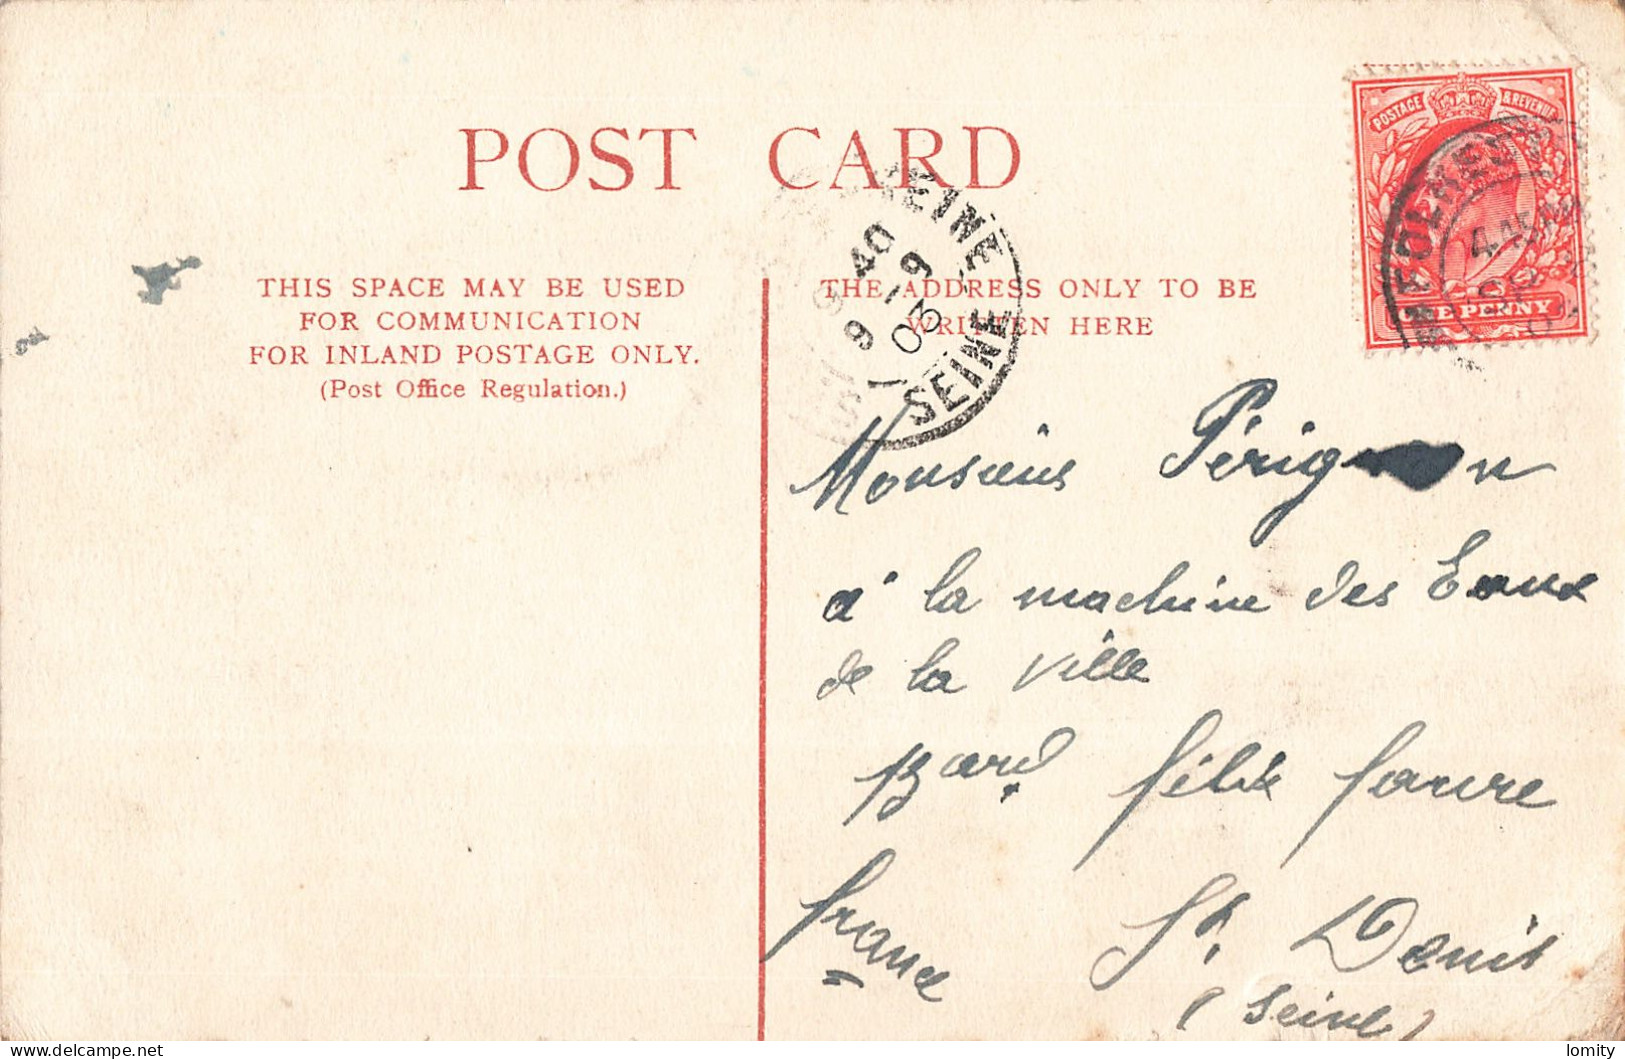 POST CARD
THIS SPACE MAY BE USED
FOR COMMUNICATION
FOR INLAND POSTAGE ONLY.
(Post Office Regulation.)
THE ADDRESS ONLY TO BE
WRITTEN HERE
POSTAGE & REVENUE
ONE PENNY
FOLKES
SEINE
9 40
9 - 9
03
SEINE
Monsieur Pérignon
à la machine des Eaux
de la Ville
Bard félix faure
france St. Denis
(Seine)
lomity